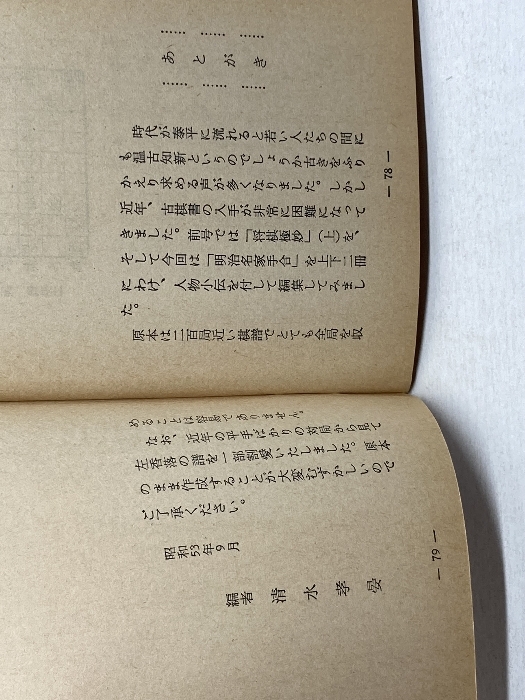 ……あとがき……
時代が泰平に流れると若い人たちの間に
も温古知新というのでしょうか古きをふり
かえり求める声が多くなりました。しかし
近年、古棋書の入手が非常に困難になって
きました。前号では「将棋極妙」(上)を、
そして今回は「明治名家手合」を上下二冊
にわけ、人物小伝を付して編集してみまし
た。
原本は二百局近い棋譜でとても全局を収
— 78 —
めることは容易でありません。
なお、近年の平手ばかりの対局から見て
左香落の譜を一部割愛いたしました。原本
のまま作成することが大変むずかしいので
ご了承ください。
昭和53年9月
編者 清水孝晏
— 79 —